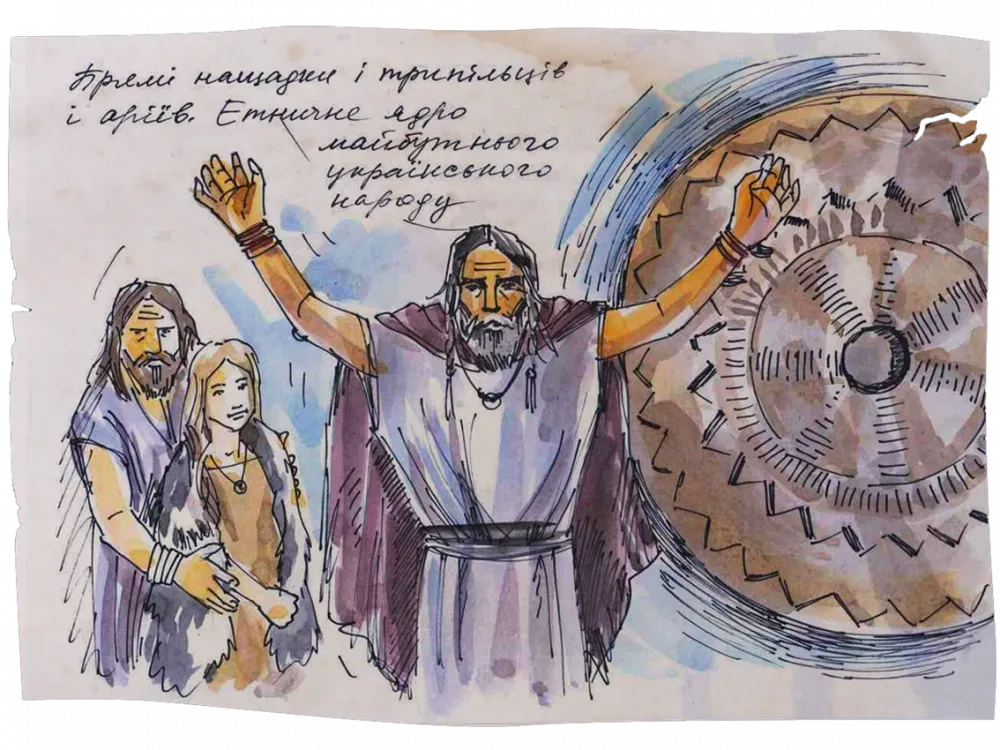 Прямі нащадки і трипільців
і аріїв. Етнічне ядро
майбутнього
українського
народу